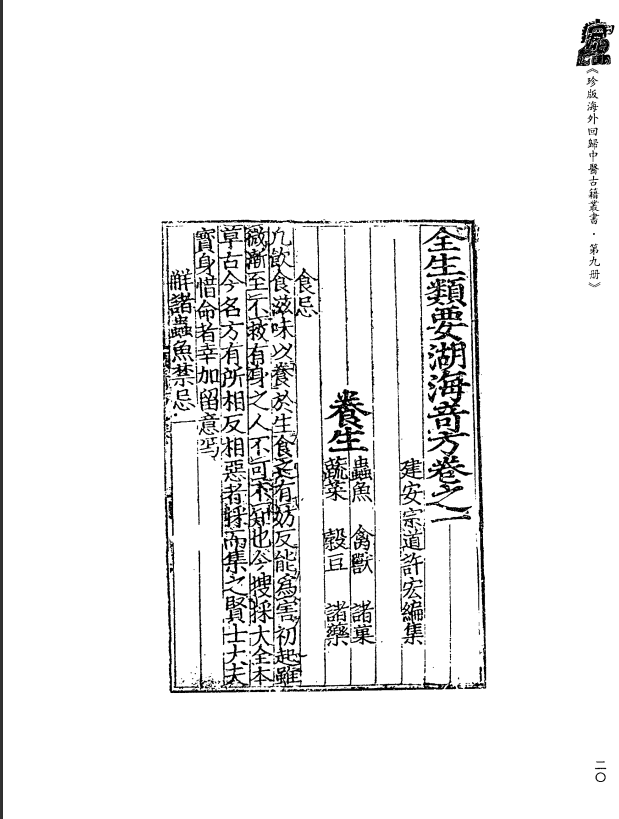 《珍版海外回歸中醫古籍叢書·第九册》
全生類要湖海奇方卷之一
建安宗道許宏編集
養生
蟲魚 禽獸 諸菓
蔬菜 穀豆 諸藥
食忌
凢飲食滋味以養於生食之有妨反能爲害初起雖
微漸至不救有身之人不可不知也今搜採大全本
草古今名方有所相反相惡者採而集之賢士大夫
寳身惜命者幸加留意焉
觧諸蟲魚禁忌
二〇